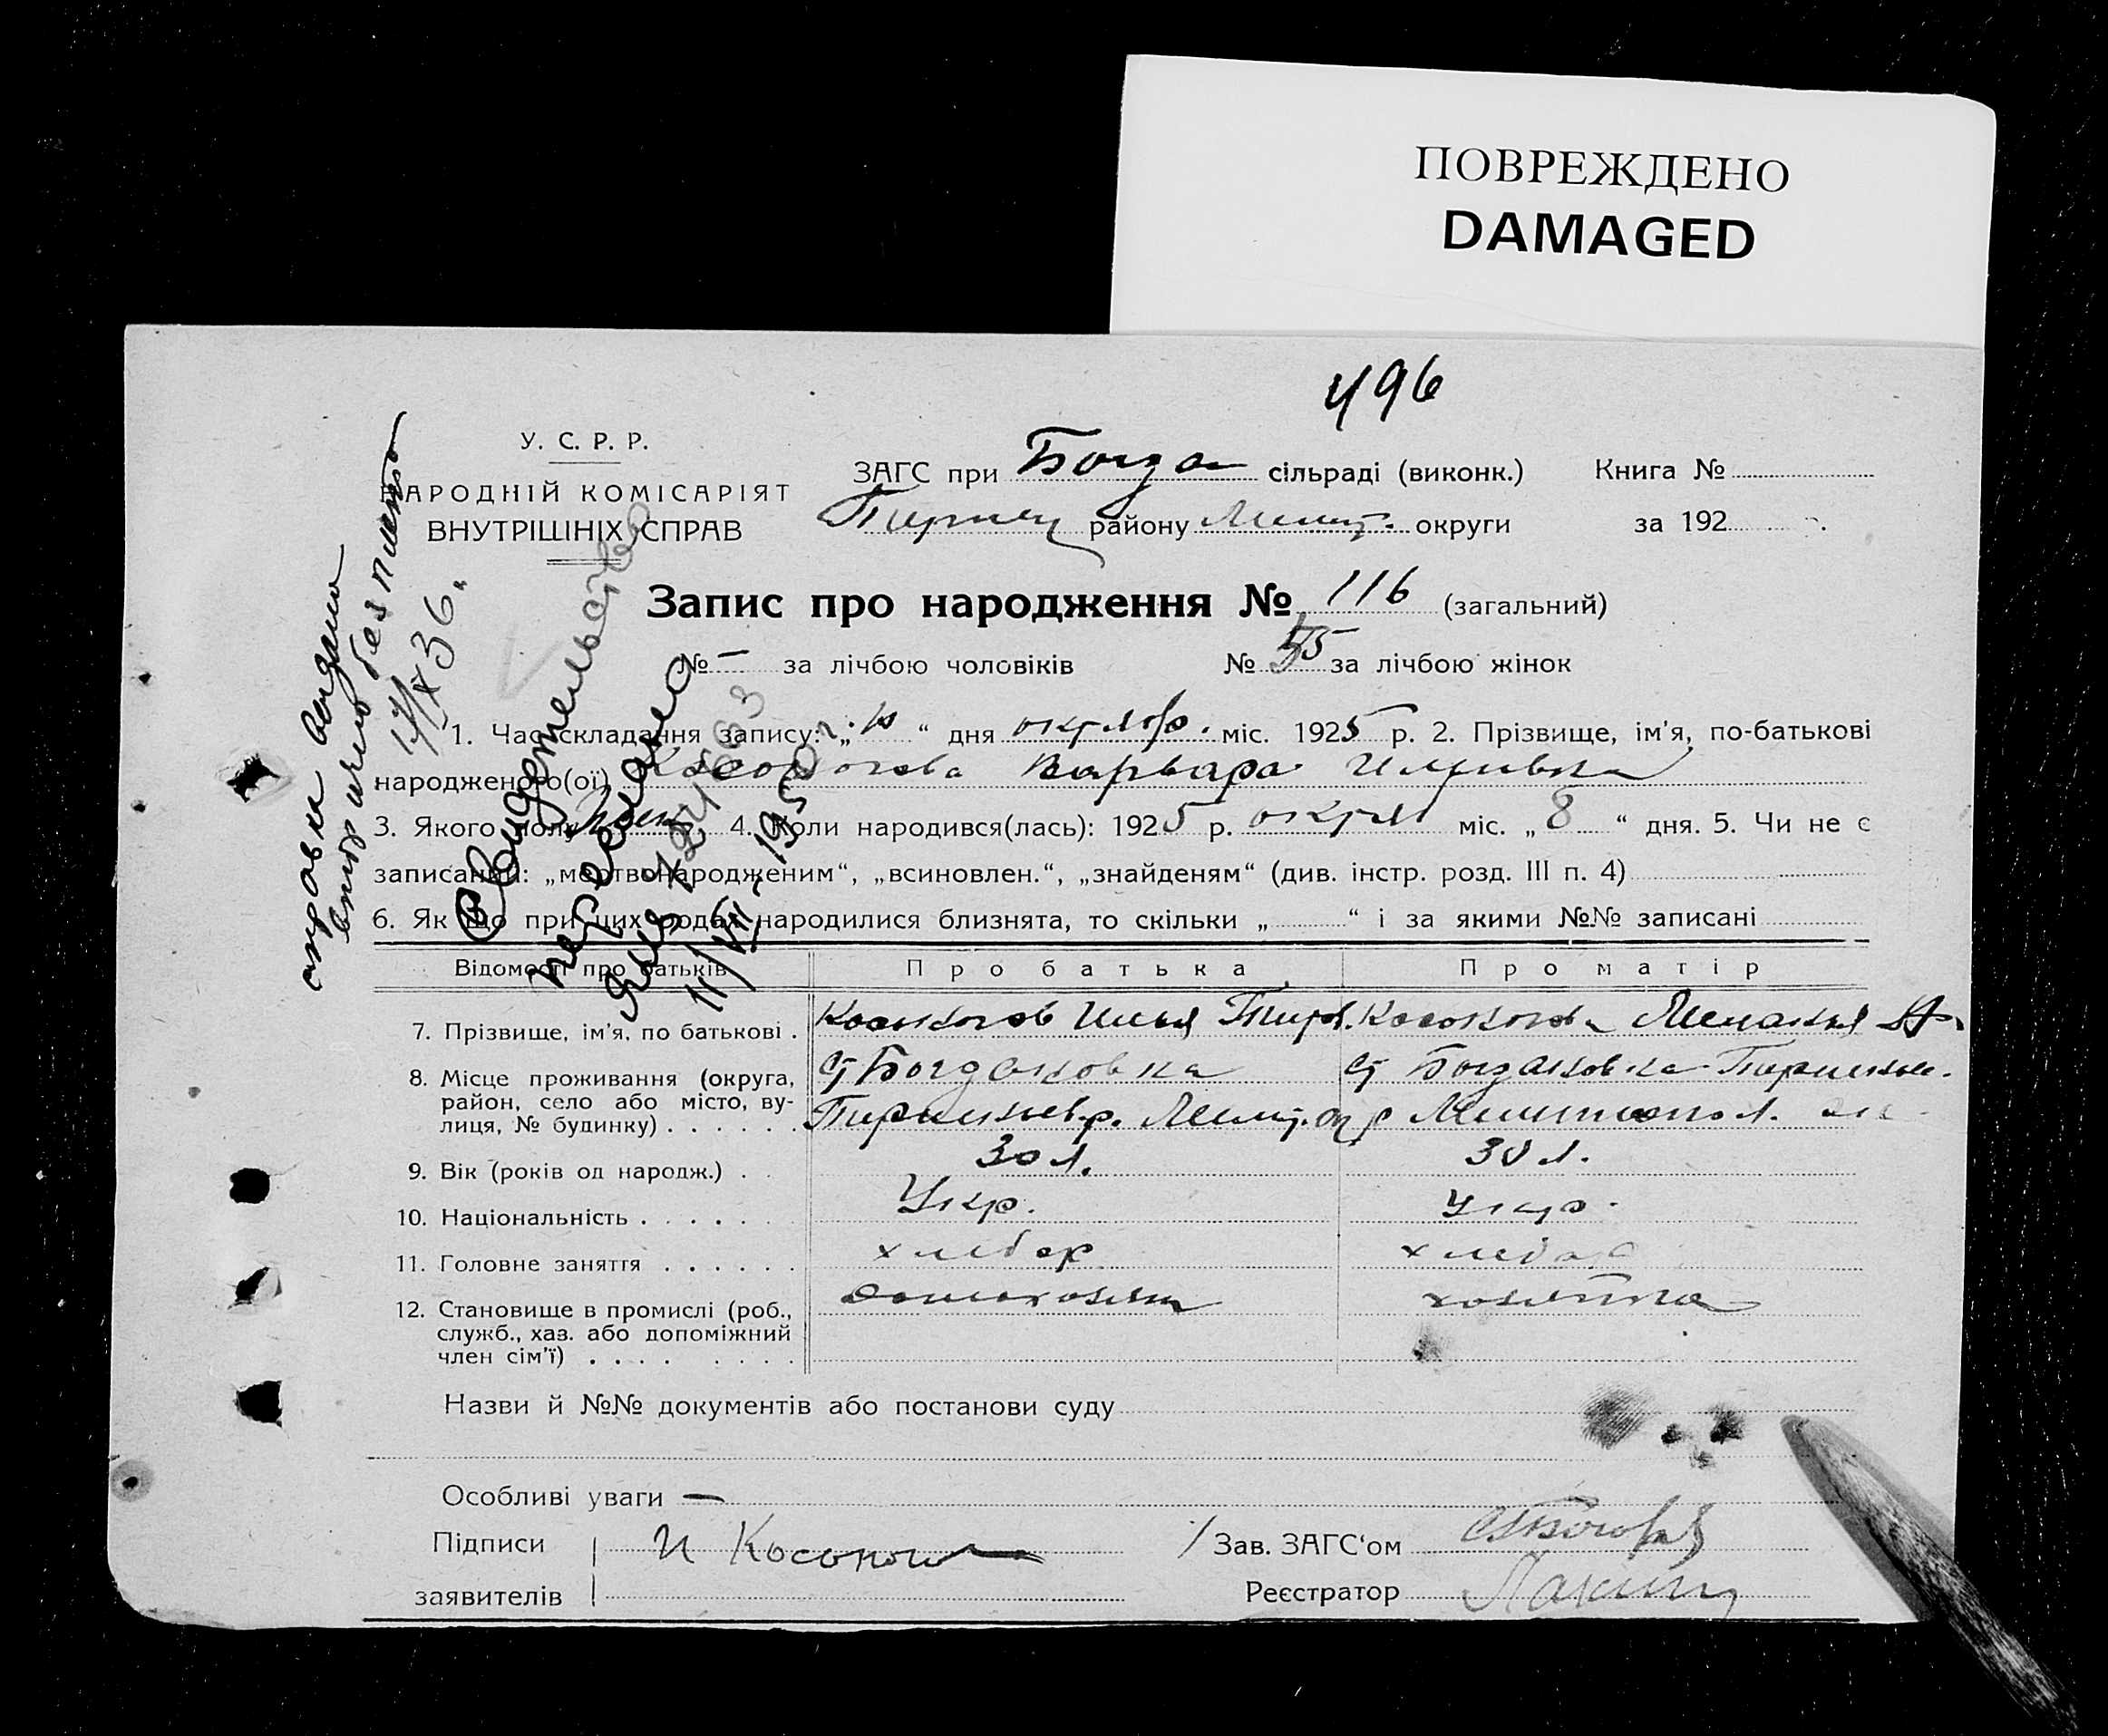 ПОВРЕЖДЕНО
DAMAGED
496
У. С. Р. Р.
НАРОДНІЙ КОМІСАРІЯТ
ВНУТРІШНІХ СПРАВ
ЗАГС при Богда сільраді (виконк.) Книга №
району Мелит. округи за 192 р.
Запис про народження № 116 (загальний)
№ — за лічбою чоловіків № 55 за лічбою жінок
1. Час складання запису: „10“ дня октябр. міс. 1925 р. 2. Прізвище, ім'я, по-батькові
народженого(ої) Косоногова Варвара
3. Якого полу жен 4. Коли народився(лась): 1925 р. октяб міс. „8“ дня. 5. Чи не є
записаний: „мертвонародженим“, „всиновлен.“, „знайденям“ (див. інстр. розд. III п. 4)
6. Як що при цих родах народилися близнята, то скільки „ “ і за якими №№ записані
Відомості про батьків Про батька Про матір
7. Прізвище, ім'я, по батькові . Косоногов Илья Косоногова Меланья
8. Місце проживання (округа, с Богдановка с Богдановка
район, село або місто, ву-
лиця, № будинку) . . . . . . Мелит. окр Мелитопол.
9. Вік (років од народж.) . . 30 л. 30 л.
10. Національність . . . . . . Укр. Укр.
11. Головне заняття . . . . . . хлебор хлебор
12. Становище в промислі (роб., домохозяин хозяйка
служб., хаз. або допоміжний
член сім'ї) . . . . . . . .
Назви й №№ документів або постанови суду
Особливі уваги —
Підписи И Косоногов Зав. ЗАГС'ом
заявителів Реєстратор
справка видана
бесплатно
4/X 36.
Свидетельство
переслано
11/VII - 1950 г.